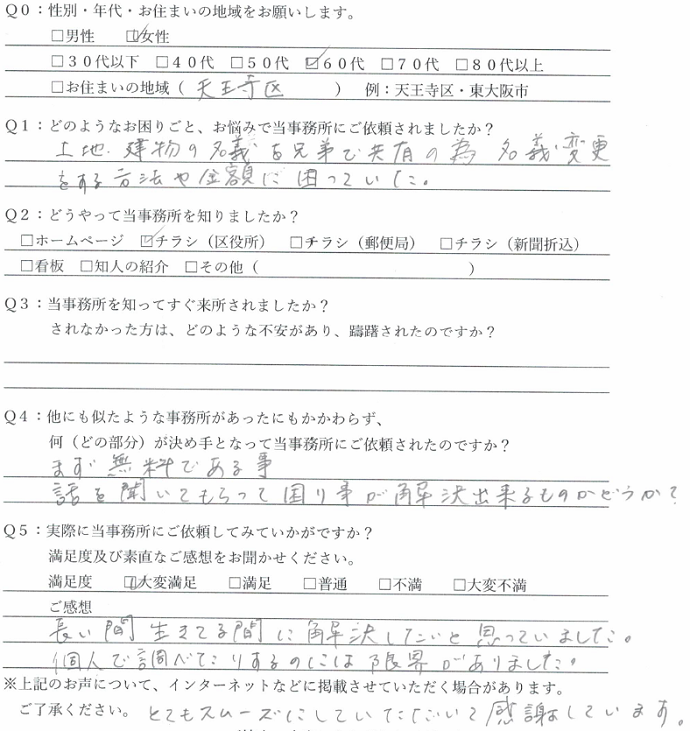 Q0：性別・年代・お住まいの地域をお願いします。
□男性　☑女性
□30代以下　□40代　□50代　☑60代　□70代　□80代以上
□お住まいの地域（ 天王寺区　　）　例：天王寺区・東大阪市
Q1：どのようなお困りごと、お悩みで当事務所にご依頼されましたか？
土地・建物の名義を兄弟で共有の為 名義変更
をする方法や金額に困っていた。
Q2：どうやって当事務所を知りましたか？
□ホームページ　☑チラシ（区役所）　□チラシ（郵便局）　□チラシ（新聞折込）
□看板　□知人の紹介　□その他（　　　　　　　　　　）
Q3：当事務所を知ってすぐ来所されましたか？
されなかった方は、どのような不安があり、躊躇されたのですか？
Q4：他にも似たような事務所があったにもかかわらず、
何（どの部分）が決め手となって当事務所にご依頼されたのですか？
まず無料である事
話を聞いてもらって困り事が解決出来るものかどうか？
Q5：実際に当事務所にご依頼してみていかがですか？
満足度及び素直なご感想をお聞かせください。
満足度　☑大変満足　□満足　□普通　□不満　□大変不満
ご感想
長い間 生きてる間に解決したいと思っていました。
個人で調べたりするのには限界がありました。
※上記のお声について、インターネットなどに掲載させていただく場合があります。
ご了承ください。 とてもスムーズにしていただいて感謝しています。